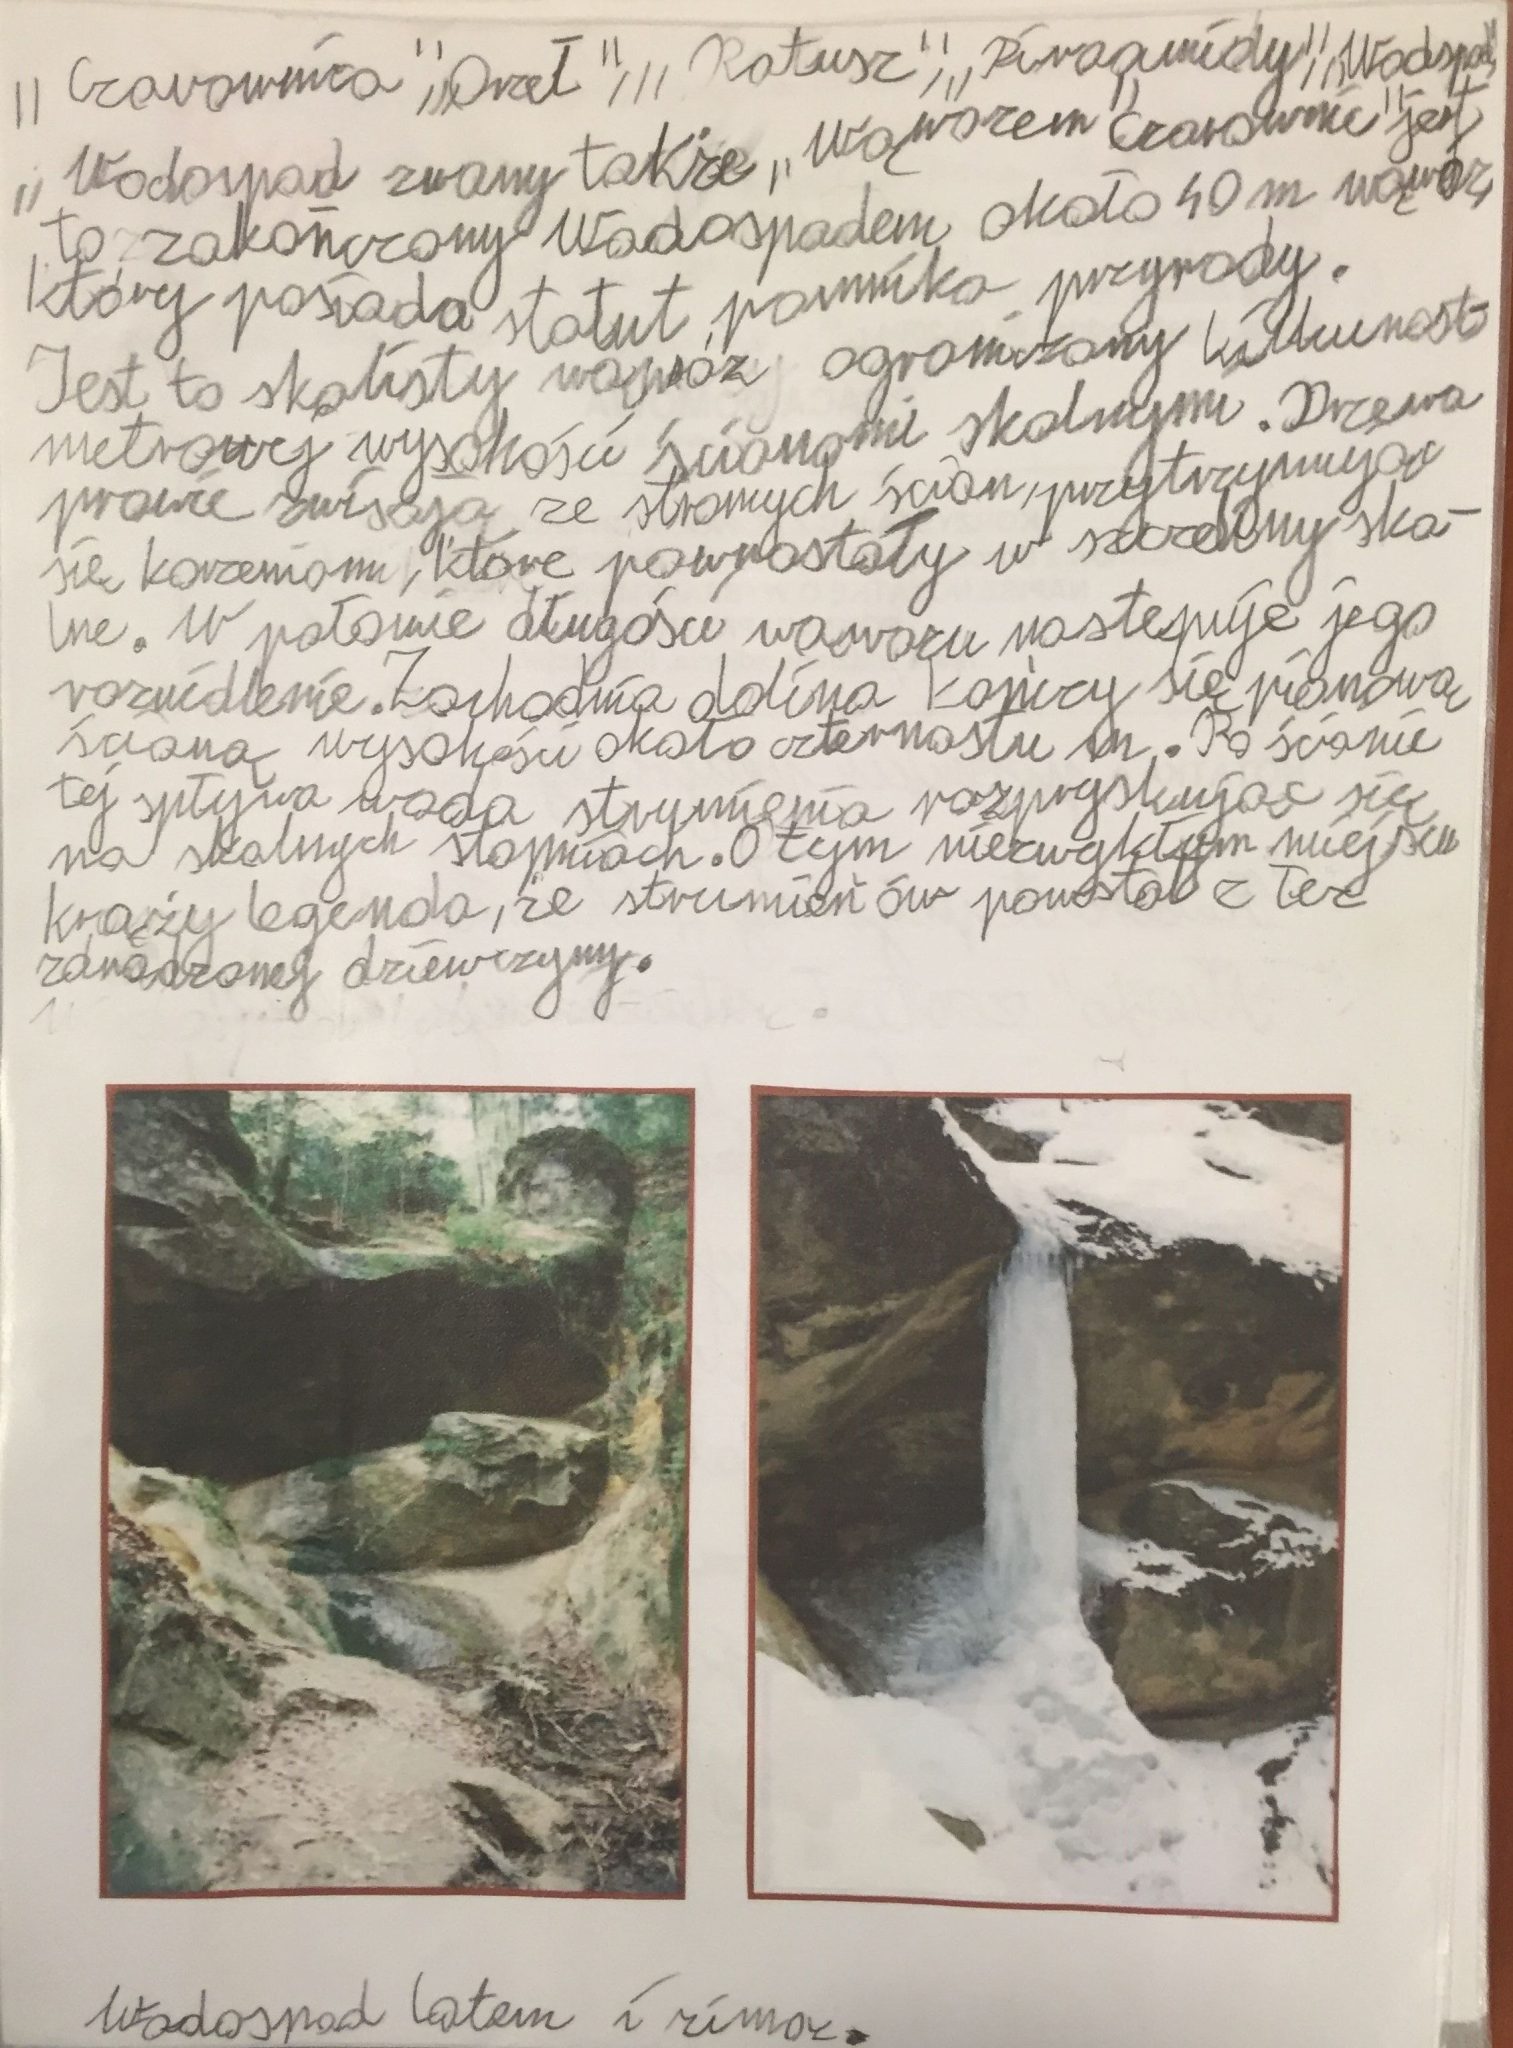 „Czarownica”, „Orzeł”, „Ratusz”, „Piramidy”, „Wodospad”
„Wodospad zwany także „Wąwozem Czarownic” jest
to zakończony Wodospadem około 40 m wąwóz,
który posiada statut pomnika przyrody.
Jest to skalisty wąwóz ograniczony kilkunasto
metrowej wysokości ścianami skalnymi. Drzewa
prawie zwisają ze stromych ścian, przytrzymując
się korzeniami, które powrastały w szczeliny ska-
lne. W połowie długości wąwozu następuje jego
rozwidlenie. Zachodnia dolina kończy się pionową
ścianą wysokości około czternastu m. Po ścianie
tej spływa woda strumienia rozpryskując się
na skalnych stopniach. O tym niezwykłym miejscu
krąży legenda, że strumień ów powstał z łez
zdradzonej dziewczyny.
Wodospad latem i zimą.